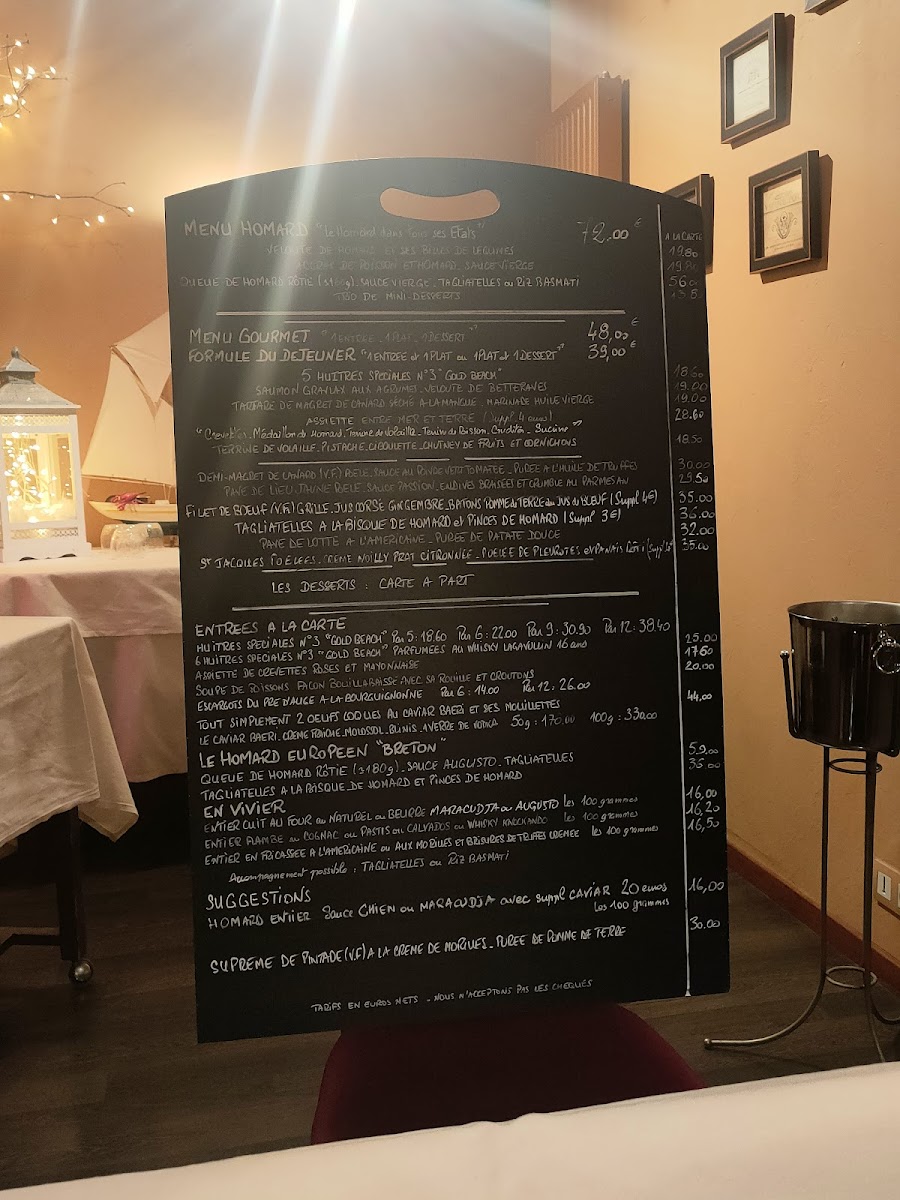 MENU HOMARD "Le Homard dans Tous ses Etats" 72,00 €
A LA CARTE
VELOUTE DE HOMARD ET SES BILLES DE LEGUMES 19.80
DE POISSON ET HOMARD, SAUCE VIERGE
QUEUE DE HOMARD RÔTIE (±180g), SAUCE VIERGE, TAGLIATELLES ou RIZ BASMATI 56.00
TRIO DE MINI-DESSERTS
MENU GOURMET "1 ENTREE - 1 PLAT - 1 DESSERT" 48,00 €
FORMULE DU DEJEUNER "1 ENTREE et 1 PLAT ou 1 PLAT et 1 DESSERT" 39,00 €
5 HUITRES SPECIALES N°3 "GOLD BEACH" 18.60
SAUMON GRAVLAX AUX AGRUMES, VELOUTE DE BETTERAVES 19.00
TARTARE DE MAGRET DE CANARD SECHE A LA MANGUE, MARINADE HUILE VIERGE 19.00
ASSIETTE ENTRE MER ET TERRE (Suppl. 4 euros) 28.60
"Crevettes, Médaillon de Homard, Terrine de Volaille, Terrine de Poisson, Crudités, Sucrine"
TERRINE DE VOLAILLE, PISTACHE, CIBOULETTE, CHUTNEY DE FRUITS ET CORNICHONS 18.50
DEMI-MAGRET DE CANARD (V.F) POELE, SAUCE AU POIVRE VERT TOMATEE - PUREE A L'HUILE DE TRUFFES 30.00
PAVE DE LIEU JAUNE POELE, SAUCE PASSION, ENDIVES BRAISEES ET CRUMBLE AU PARMESAN 29.50
FILET DE BOEUF (V.F) GRILLE, JUS CORSE GINGEMBRE, BATONS POMME de TERRE au JUS du BOEUF (Suppl 4€) 35.00
TAGLIATELLES A LA BISQUE DE HOMARD et PINCES DE HOMARD (Suppl 3€) 36.00
PAVE DE LOTTE A L'AMERICAINE - PUREE DE PATATE DOUCE 32.00
ST JACQUES POELEES, CREME NOILLY PRAT CITRONNEE - POELEE DE PLEUROTES et PANAIS RÔTI 35.00
LES DESSERTS : CARTE A PART
ENTREES A LA CARTE
HUITRES SPECIALES N°3 "GOLD BEACH" Par 5 : 18.60 Par 6 : 22.00 Par 9 : 30.90 Par 12 : 38.40
6 HUITRES SPECIALES N°3 "GOLD BEACH" PARFUMEES AU WHISKY LAGAVULIN 16 ans 25.00
ASSIETTE DE CREVETTES ROSES ET MAYONNAISE 17.60
SOUPE DE POISSONS FACON BOUILLABAISSE AVEC SA ROUILLE ET CROUTONS 20.00
ESCARGOTS DU PRE D'AUGE A LA BOURGUIGNONNE Par 6 : 14.00 Par 12 : 26.00
TOUT SIMPLEMENT 2 OEUFS COQUES AU CAVIAR BAERI ET SES MOUILLETTES 44,00
LE CAVIAR BAERI, CREME FRAICHE, MOLOSSOL, BLINIS, A VERRE DE VODKA 50g : 170.00 100g : 330.00
LE HOMARD EUROPEEN "BRETON"
QUEUE DE HOMARD RÔTIE (±180g), SAUCE AUGUSTO, TAGLIATELLES 59,00
TAGLIATELLES A LA BISQUE DE HOMARD ET PINCES DE HOMARD 36.00
EN VIVIER
ENTIER CUIT AU FOUR au NATUREL ou BEURRE MARACUDJA ou AUGUSTO les 100 grammes 16,00
ENTIER FLAMBE au COGNAC ou PASTIS ou CALVADOS ou WHISKY KNOCKANDO les 100 grammes 16,20
ENTIER EN FRICASSEE A L'AMERICAINE ou AUX MORILLES ET BRISURES DE TRUFFES CREMEE les 100 grammes 16,50
Accompagnement possible : TAGLIATELLES ou RIZ BASMATI
SUGGESTIONS
HOMARD ENTIER Sauce CHIEN ou MARACUDJA avec suppl CAVIAR 20 euros 16,00
Les 100 grammes
SUPREME DE PINTADE (V.F) A LA CREME DE MORILLES - PUREE DE POMME DE TERRE 30.00
TARIFS EN EUROS NETS - NOUS N'ACCEPTONS PAS LES CHEQUES